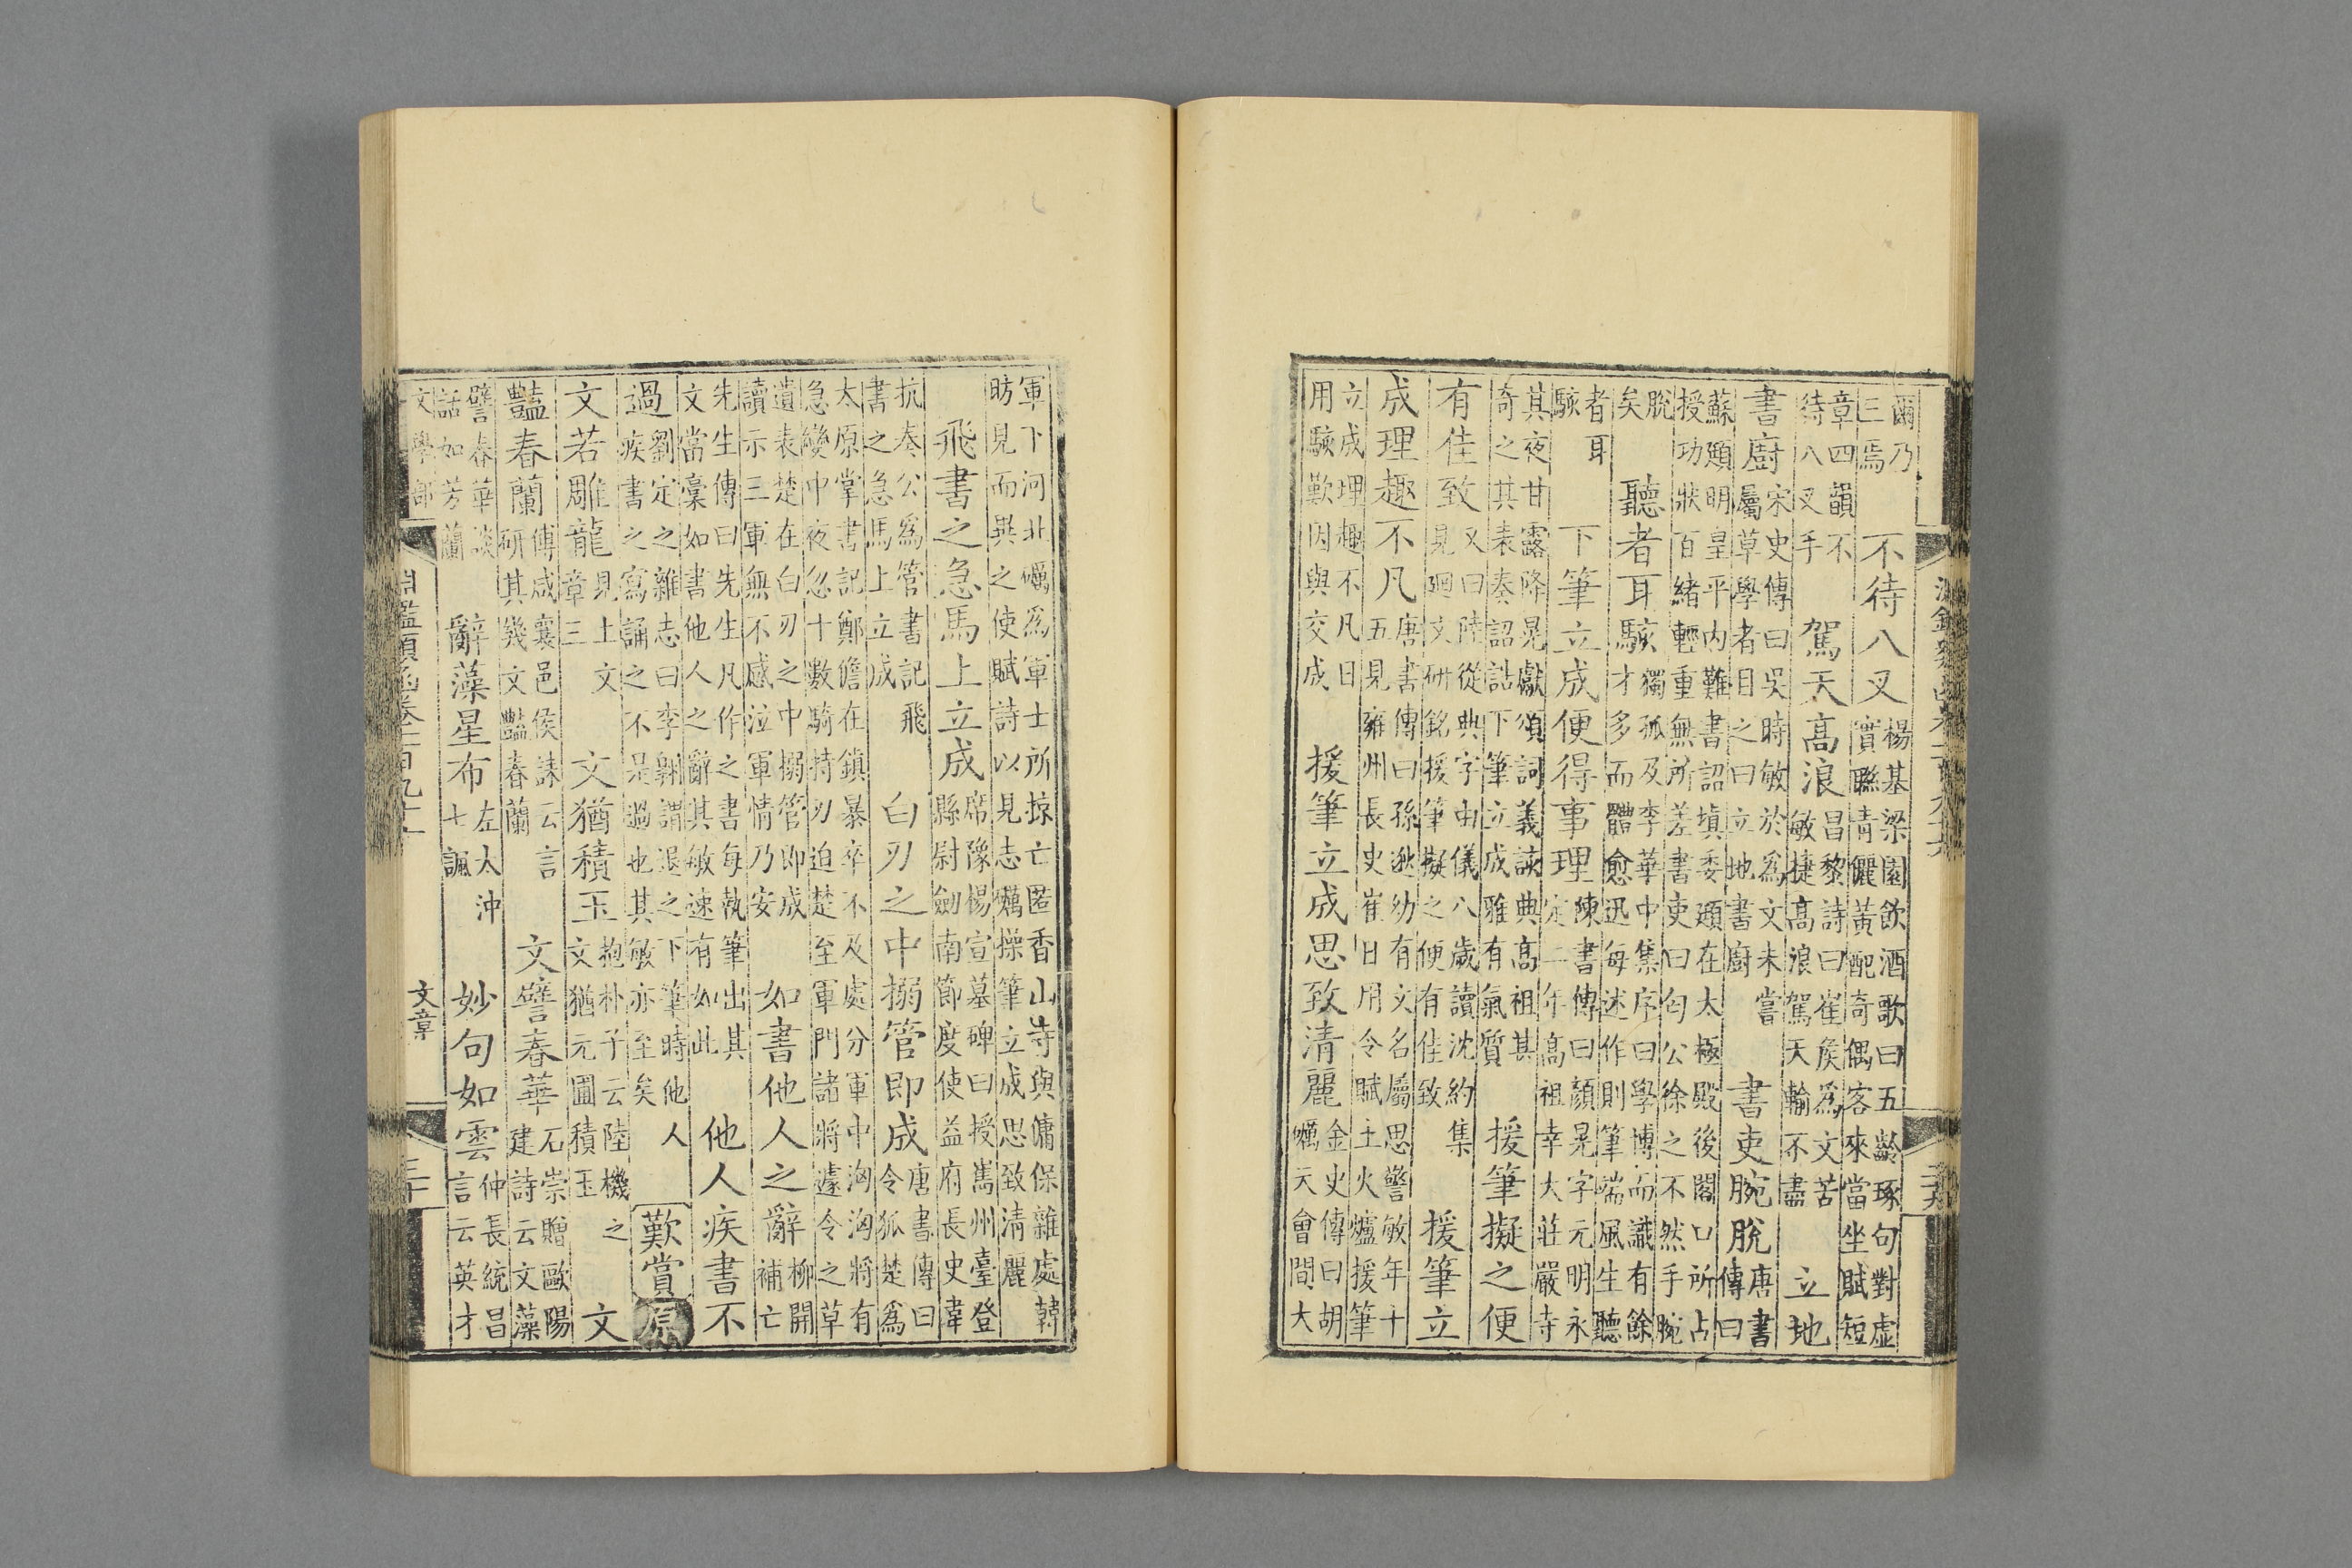 爾乃
三焉
不待八叉
楊基梁園飲酒歌曰五齡琢句對虛
實聯青儷黃配奇偶客來當坐賦短
章四韻不
待八叉手
駕天高浪
昌黎詩曰崔侯爲文苦
敏捷高浪駕天輸不盡
立地
書廚
宋史傳曰吳時敏於爲文未嘗
屬草學者目之曰立地書廚
書吏腕脫
唐書
傳曰
蘇頲明皇平內難書詔填委頲在太極殿後閣口所占
授功狀百緒輕重無所差書吏曰丐公徐之不然手腕
脫
矣
聽者耳駭
獨孤及李華中集序曰學博而識有餘
才多而體愈迅每述作則筆端風生聽
者耳
駭
下筆立成便得事理
陳書傳曰顏晃字元明永
定二年高祖幸大莊嚴寺
其夜甘露降晃獻頌詞義該典高祖甚
奇之其表奏詔誥下筆立成雅有氣質
援筆擬之便
有佳致
又曰陸從典字由儀八歲讀沈約集
見廻文研銘援筆擬之便有佳致
援筆立
成理趣不凡
唐書傳曰孫逖幼有文名屬思警敏年十
五見雍州長史崔日用令賦土火爐援筆
立成理趣不凡日
用駭歎因與交成
援筆立成思致清麗
金史傳曰胡
礪天會間大
軍下河北礪爲軍士所掠亡匿香山寺與傭保雜處韓
昉見而異之使賦詩以見志礪操筆立成思致清麗
飛書之急馬上立成
席豫楊宣墓碑曰授嶲州臺登
縣尉劍南節度使益府長史韋
抗奏公爲管書記飛
書之急馬上立成
白刃之中搦管卽成
唐書傳曰
令狐楚爲
太原掌書記鄭儋在鎮暴卒不及處分軍中洶洶將有
急變中夜忽十數騎持刃迫楚至軍門諸將遽令之草
遺表楚在白刃之中搦管卽成
讀示三軍無不感泣軍情乃安
如書他人之辭
柳開
補亡
先生傳曰先生凡作之書每執筆出其
文當藁如書他人之辭其敏速有如此
他人疾書不
過
劉定之雜志曰李翱謂退之下筆時他人
疾書之寫誦之不是過也其敏亦至矣
歎賞
原
文
文若雕龍
見上文
章三
文猶積玉
抱朴子云陸機之
文猶元圃積玉
文
豔春蘭
傅咸襄邑侯誄云言
研其幾文豔春蘭
文譬春華
石崇贈歐陽
建詩云文藻
譬春華談
話如芳蘭
辭藻星布
左太沖
七諷
妙句如雲
仲長統昌
言云英才
文學部
淵鑑類函卷一百九十
文章
三十